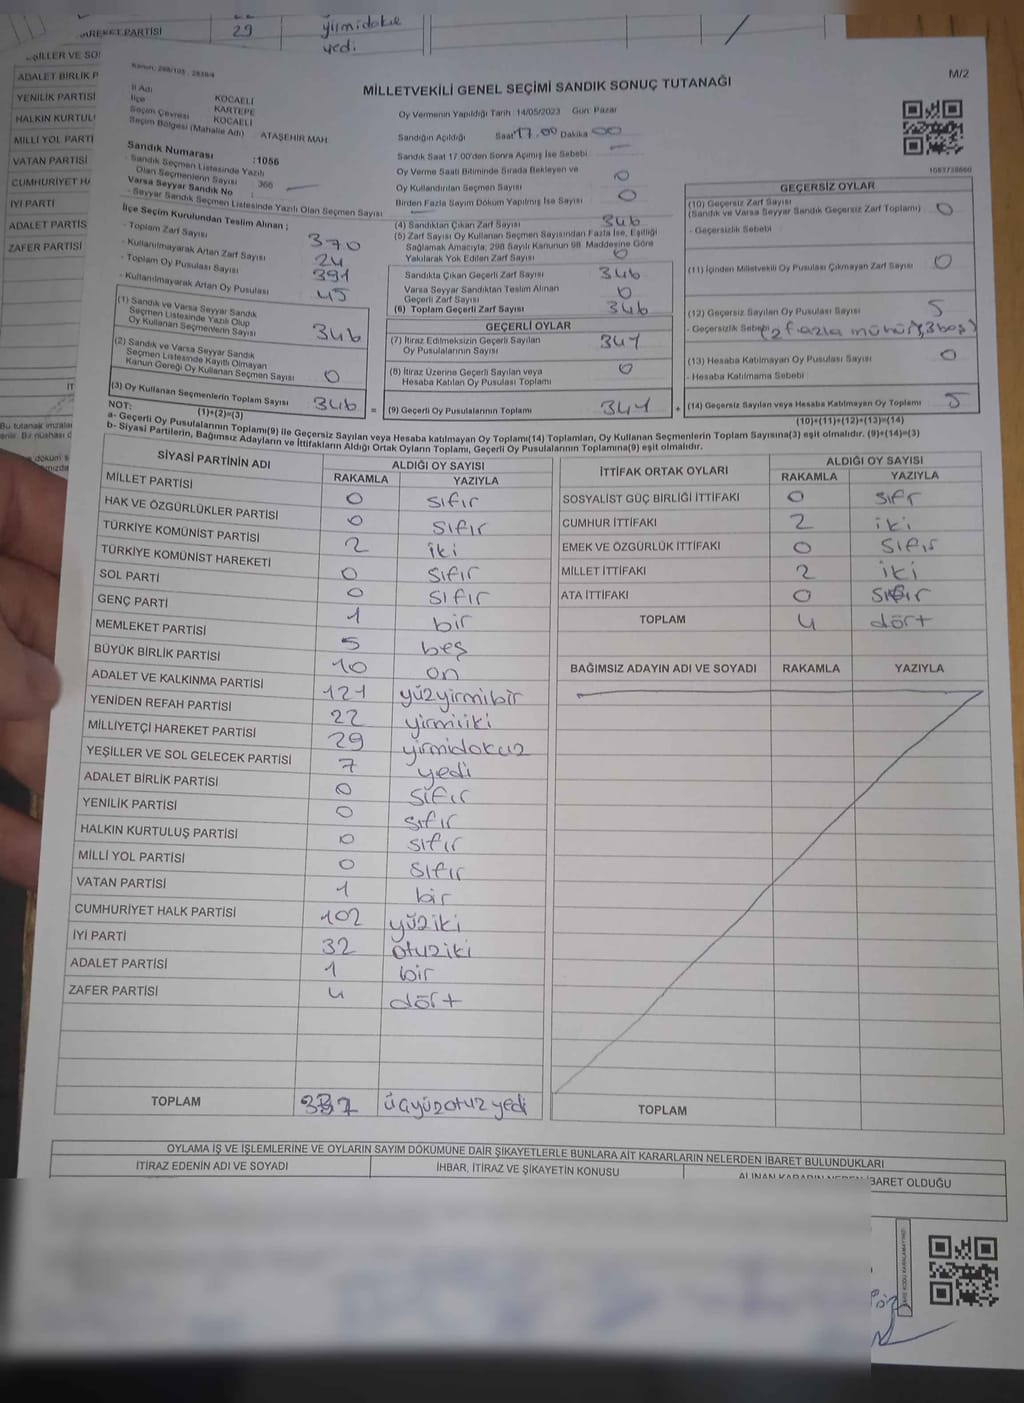 AREKET PARTİSİ 29 yirmidokuz
yedi
ADALET BİRLİK P
YENİLİK PARTİSİ
HALKIN KURTUL
MİLLİ YOL PARTİ
VATAN PARTİSİ
CUMHURİYET HA
İYİ PARTİ
ADALET PARTİS
ZAFER PARTİSİ
M/2
MİLLETVEKİLİ GENEL SEÇİMİ SANDIK SONUÇ TUTANAĞI
İl Adı KOCAELİ
İlçe KARTEPE
Seçim Çevresi KOCAELİ
Seçim Bölgesi (Mahalle Adı) ATAŞEHİR MAH
Sandık Numarası :1056
- Sandık Seçmen Listesinde Yazılı
Olan Seçmenlerin Sayısı 366
Varsa Seyyar Sandık No :
- Seyyar Sandık Seçmen Listesinde Yazılı Olan Seçmen Sayısı
İlçe Seçim Kurulundan Teslim Alınan ;
- Toplam Zarf Sayısı 370
- Kullanılmayarak Artan Zarf Sayısı 24
- Toplam Oy Pusulası Sayısı 391
- Kullanılmayarak Artan Oy Pusulası 45
(1) Sandık ve Varsa Seyyar Sandık
Seçmen Listesinde Yazılı Olup
Oy Kullanan Seçmenlerin Sayısı 346
(2) Sandık ve Varsa Seyyar Sandık
Seçmen Listesinde Kayıtlı Olmayan
Kanun Gereği Oy Kullanan Seçmen Sayısı 0
(3) Oy Kullanan Seçmenlerin Toplam Sayısı 346 =
(1)+(2)=(3)
Oy Vermenin Yapıldığı Tarih :14/05/2023 Gün: Pazar
Sandığın Açıldığı Saat 17.00 Dakika 00
Sandık Saat 17:00'den Sonra Açılmış İse Sebebi
Oy Verme Saati Bitiminde Sırada Bekleyen ve
Oy Kullandırılan Seçmen Sayısı 0
Birden Fazla Sayım Döküm Yapılmış İse Sayısı 0
(4) Sandıktan Çıkan Zarf Sayısı 346
(5) Zarf Sayısı Oy Kullanan Seçmen Sayısından Fazla İse, Eşitliği
Sağlamak Amacıyla; 298 Sayılı Kanunun 98. Maddesine Göre
Yakılarak Yok Edilen Zarf Sayısı 0
Sandıkta Çıkan Geçerli Zarf Sayısı 346
Varsa Seyyar Sandıktan Teslim Alınan
Geçerli Zarf Sayısı 0
(6) Toplam Geçerli Zarf Sayısı 346
GEÇERLİ OYLAR
(7) İtiraz Edilmeksizin Geçerli Sayılan
Oy Pusulalarının Sayısı 341
(8) İtiraz Üzerine Geçerli Sayılan veya
Hesaba Katılan Oy Pusulası Toplamı 0
(9) Geçerli Oy Pusulalarının Toplamı 341 +
1087738860
GEÇERSİZ OYLAR
(10) Geçersiz Zarf Sayısı
(Sandık ve Varsa Seyyar Sandık Geçersiz Zarf Toplamı) 0
- Geçersizlik Sebebi
(11) İçinden Milletvekili Oy Pusulası Çıkmayan Zarf Sayısı 0
(12) Geçersiz Sayılan Oy Pusulası Sayısı 5
- Geçersizlik Sebebi (2 fazla mühür, 3 boş)
(13) Hesaba Katılmayan Oy Pusulası Sayısı 0
- Hesaba Katılmama Sebebi
(14) Geçersiz Sayılan veya Hesaba Katılmayan Oy Toplamı 5
(10)+(11)+(12)+(13)=(14)
NOT:
a- Geçerli Oy Pusulalarının Toplamı(9) ile Geçersiz Sayılan veya Hesaba katılmayan Oy Toplamı(14) Toplamları, Oy Kullanan Seçmenlerin Toplam Sayısına(3) eşit olmalıdır. (9)+(14)=(3)
b- Siyasi Partilerin, Bağımsız Adayların ve İttifakların Aldığı Ortak Oyların Toplamı, Geçerli Oy Pusulalarının Toplamına(9) eşit olmalıdır.
SİYASİ PARTİNİN ADI ALDIĞI OY SAYISI
RAKAMLA YAZIYLA
MİLLET PARTİSİ 0 sıfır
HAK VE ÖZGÜRLÜKLER PARTİSİ 0 sıfır
TÜRKİYE KOMÜNİST PARTİSİ 2 iki
TÜRKİYE KOMÜNİST HAREKETİ 0 sıfır
SOL PARTİ 0 sıfır
GENÇ PARTİ 1 bir
MEMLEKET PARTİSİ 5 beş
BÜYÜK BİRLİK PARTİSİ 10 on
ADALET VE KALKINMA PARTİSİ 121 yüzyirmibir
YENİDEN REFAH PARTİSİ 22 yirmiiki
MİLLİYETÇİ HAREKET PARTİSİ 29 yirmidokuz
YEŞİLLER VE SOL GELECEK PARTİSİ 7 yedi
ADALET BİRLİK PARTİSİ 0 sıfır
YENİLİK PARTİSİ 0 sıfır
HALKIN KURTULUŞ PARTİSİ 0 sıfır
MİLLİ YOL PARTİSİ 0 sıfır
VATAN PARTİSİ 1 bir
CUMHURİYET HALK PARTİSİ 102 yüziki
İYİ PARTİ 32 otuziki
ADALET PARTİSİ 1 bir
ZAFER PARTİSİ 4 dört
TOPLAM 337 üçyüzotuzyedi
İTTİFAK ORTAK OYLARI ALDIĞI OY SAYISI
RAKAMLA YAZIYLA
SOSYALİST GÜÇ BİRLİĞİ İTTİFAKI 0 sıfır
CUMHUR İTTİFAKI 2 iki
EMEK VE ÖZGÜRLÜK İTTİFAKI 0 sıfır
MİLLET İTTİFAKI 2 iki
ATA İTTİFAKI 0 sıfır
TOPLAM 4 dört
BAĞIMSIZ ADAYIN ADI VE SOYADI RAKAMLA YAZIYLA
TOPLAM
OYLAMA İŞ VE İŞLEMLERİNE VE OYLARIN SAYIM DÖKÜMÜNE DAİR ŞİKAYETLERLE BUNLARA AİT KARARLARIN NELERDEN İBARET BULUNDUKLARI
İTİRAZ EDENİN ADI VE SOYADI İHBAR, İTİRAZ VE ŞİKAYETİN KONUSU ALINAN KARARIN NEDEN İBARET OLDUĞU